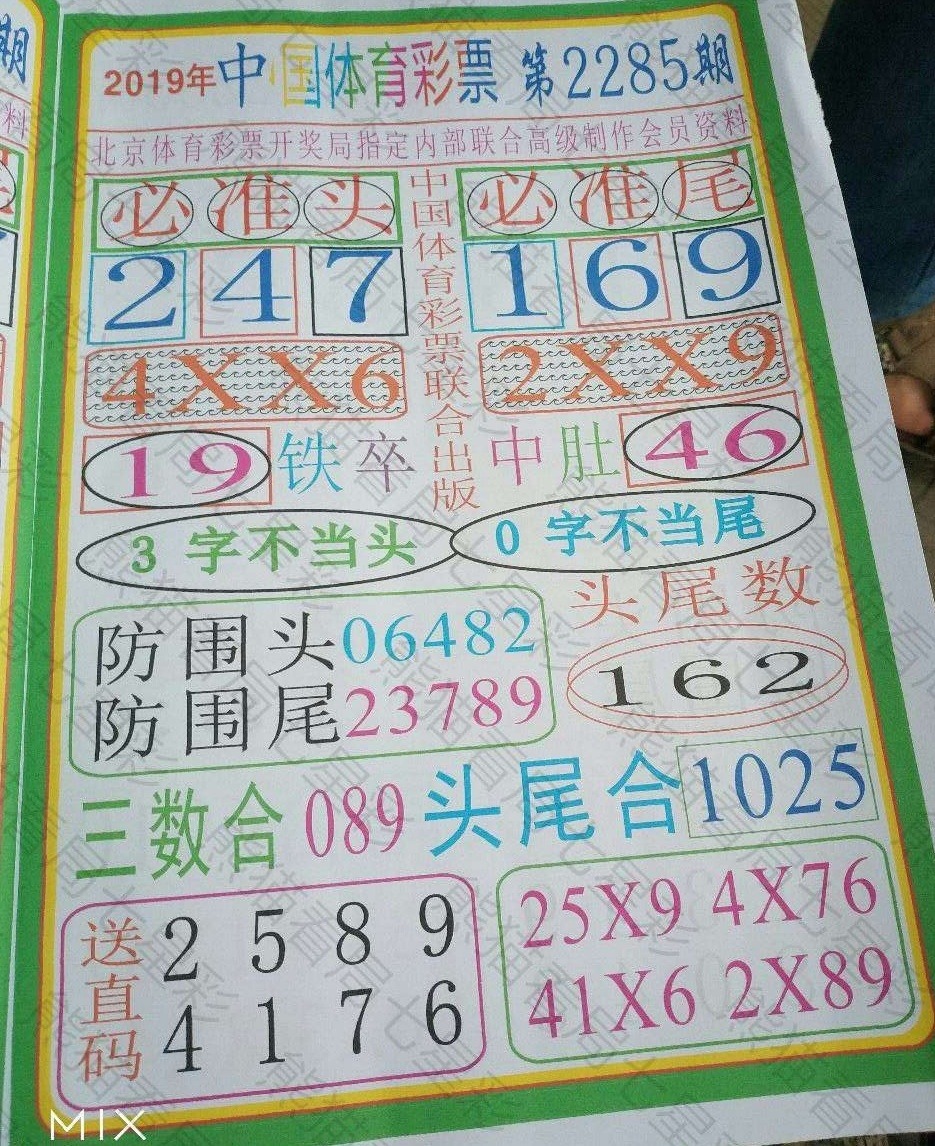 期
料
2019年中国体育彩票 第2285期
北京体育彩票开奖局指定内部联合高级制作会员资料
必准头
必准尾
中国体育彩票联合出版
2 4 7
1 6 9
4XX6
2XX9
19铁卒
中肚46
3字不当头
0字不当尾
头尾数
防围头06482
162
防围尾23789
三数合089 头尾合1025
送直码
2 5 8 9
4 1 7 6
25X9 4X76
41X6 2X89
熊猫看局七星彩
MIX